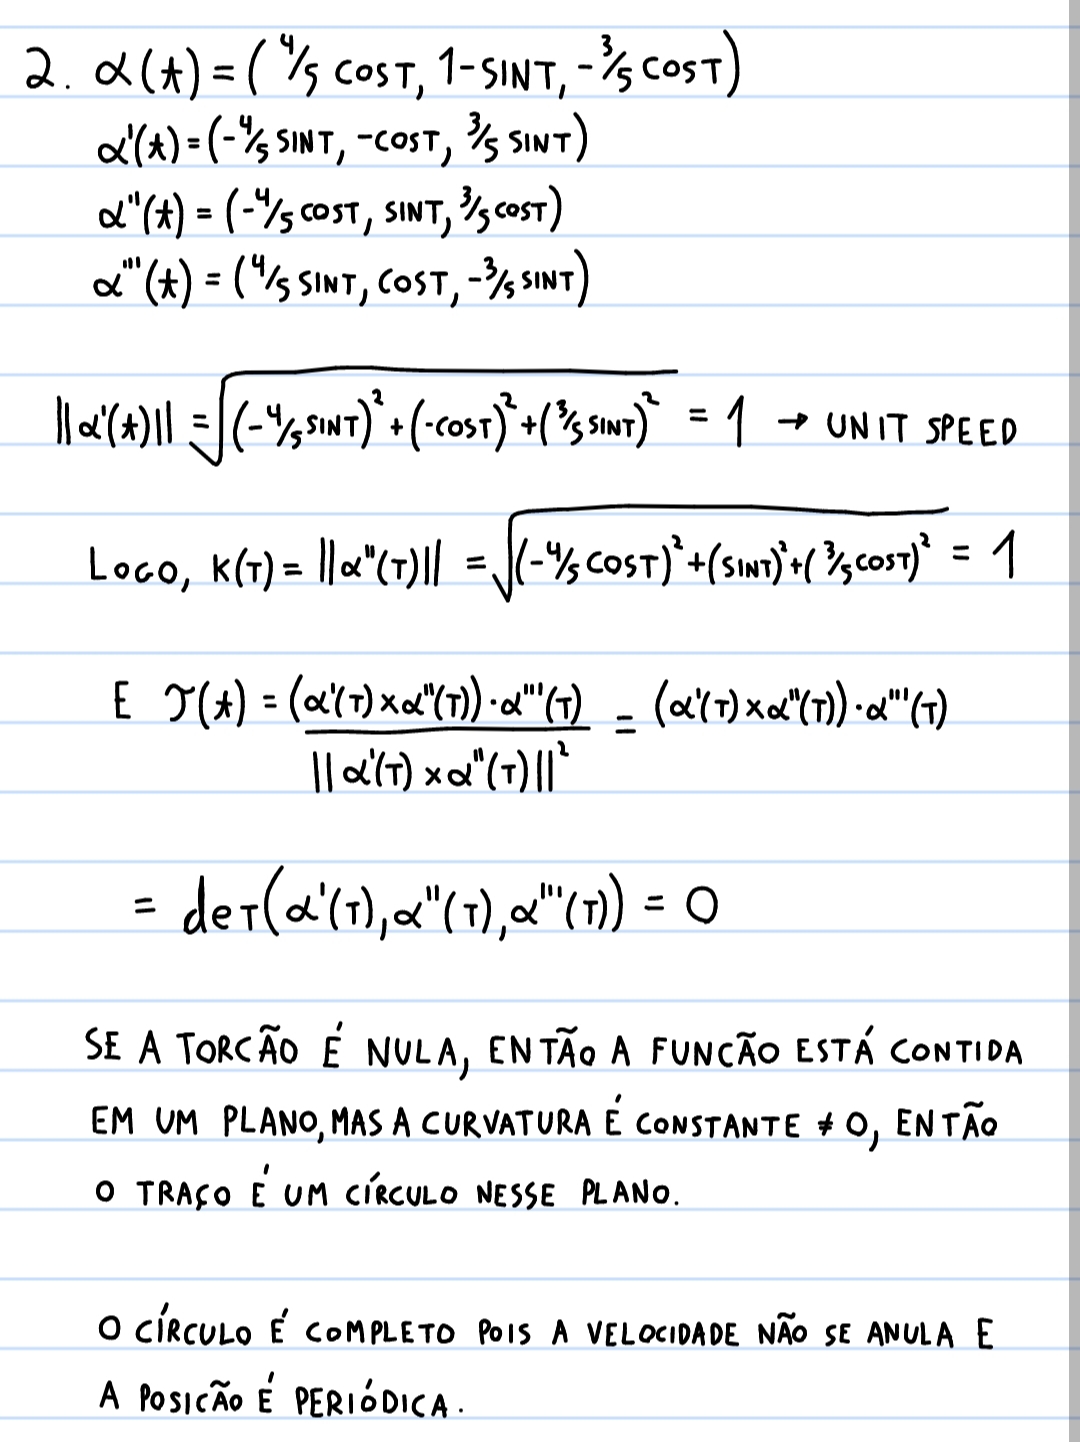 2. α(t) = (4/5 cosT, 1-sinT, -3/5 cosT)
α'(t) = (-4/5 sinT, -cosT, 3/5 sinT)
α''(t) = (-4/5 cosT, sinT, 3/5 cosT)
α'''(t) = (4/5 sinT, cosT, -3/5 sinT)
||α'(t)|| = √((-4/5 sinT)² + (-cosT)² + (3/5 sinT)²) = 1 → UNIT SPEED
LOGO, K(T) = ||α''(T)|| = √((-4/5 cosT)² + (sinT)² + (3/5 cosT)²) = 1
E τ(t) = (α'(T) × α''(T)) · α'''(T) / ||α'(T) × α''(T)||² = (α'(T) × α''(T)) · α'''(T)
= det(α'(T), α''(T), α'''(T)) = 0
SE A TORCÃO É NULA, ENTÃO A FUNCÃO ESTÁ CONTIDA
EM UM PLANO, MAS A CURVATURA É CONSTANTE ≠ 0, ENTÃO
O TRAÇO É UM CÍRCULO NESSE PLANO.
O CÍRCULO É COMPLETO POIS A VELOCIDADE NÃO SE ANULA E
A POSICÃO É PERIÓDICA.